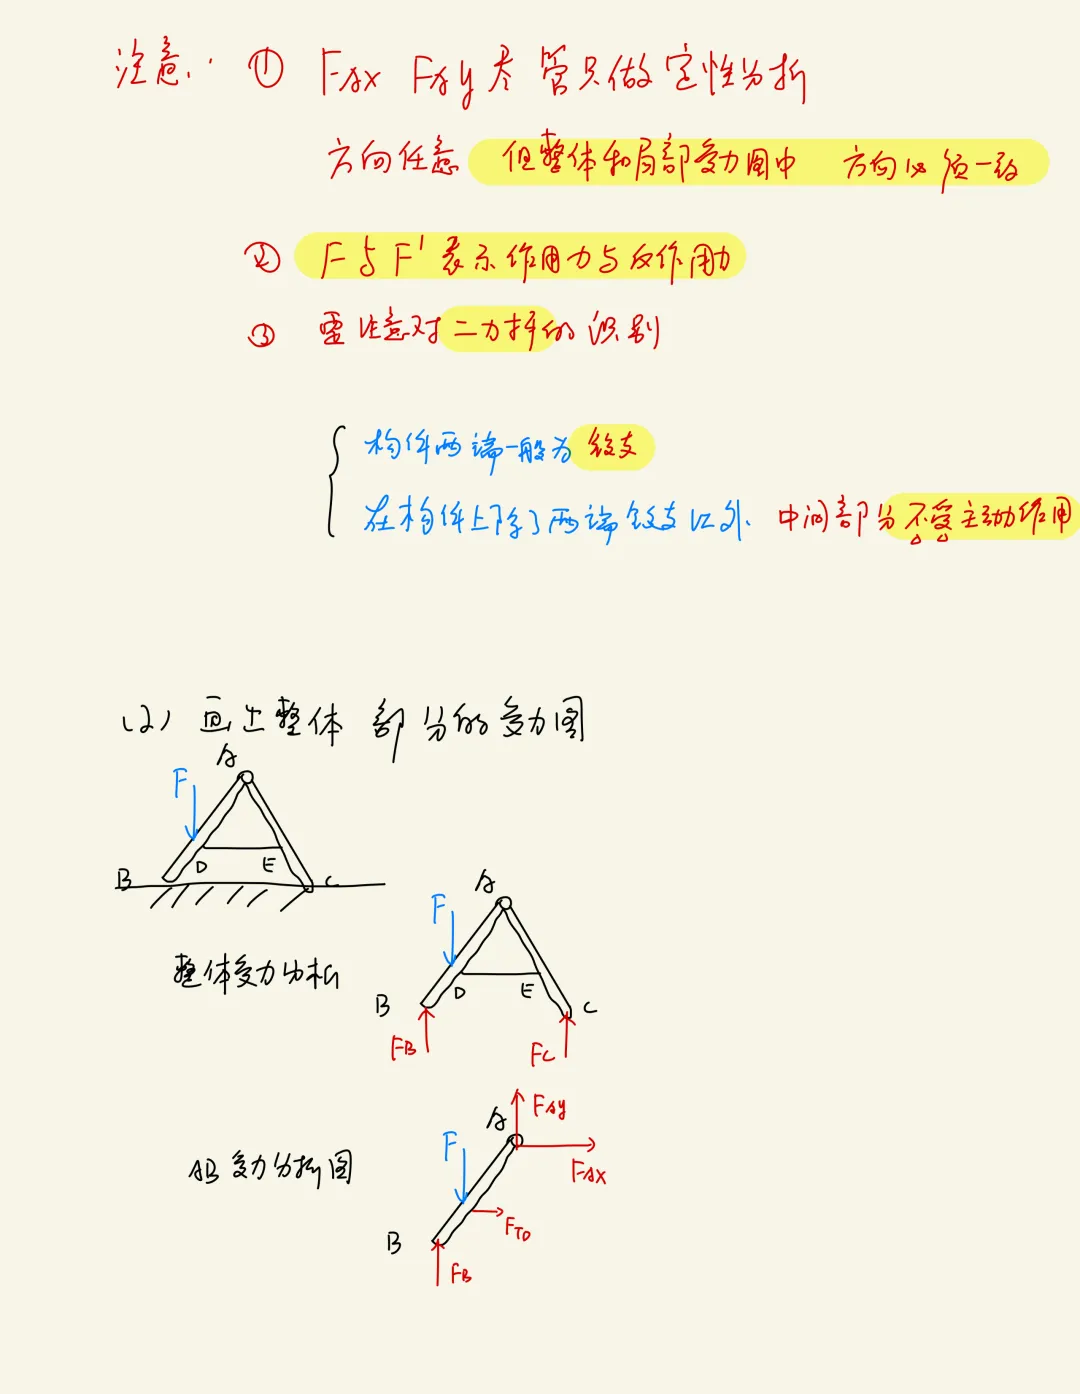 注意: ① FAx FAy 尽管只做定性分析
方向任意 但整体和局部受力图中 方向必须一致
② F与F' 表示作用力与反作用力
③ 需注意对二力杆的识别
构件两端一般为铰支
在构件上除了两端铰支以外 中间部分不受主动作用
(2) 画出整体 部分的受力图
A
F
B D E C
A
F
整体受力分析
B D E C
FB FC
A FAy
F
FAx
AB受力分析图
FTD
B
FB